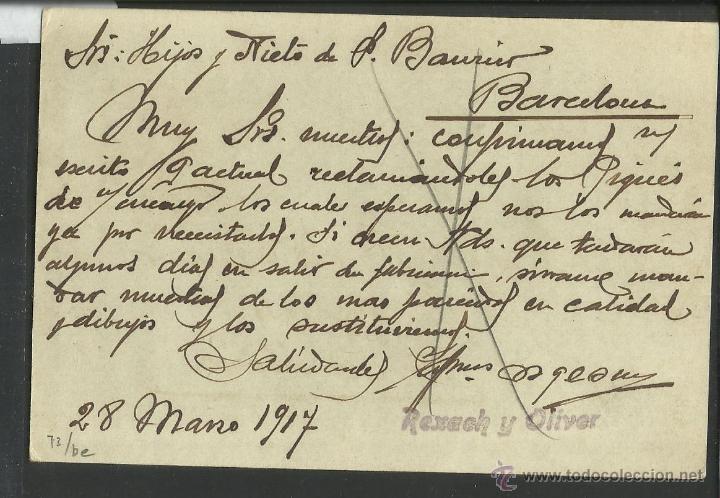 Srs: Hijos y Nieto de
Barcelona
Muy Srs. nuestros: confirmamos n/
escrito 9 actual reclamándoles los Piqués
de los cuale esperamos nos los mandarán
ya por necesitarlos. Si creen Vds. que tardarán
algunos días en salir de fabricación, sírvanse man-
dar muestras de los mas parecidos en calidad
y dibujos y los sustituiremos.
Saludandoles
28 Marzo 1917
Rexach y Oliver
73/be
© www.todocoleccion.net